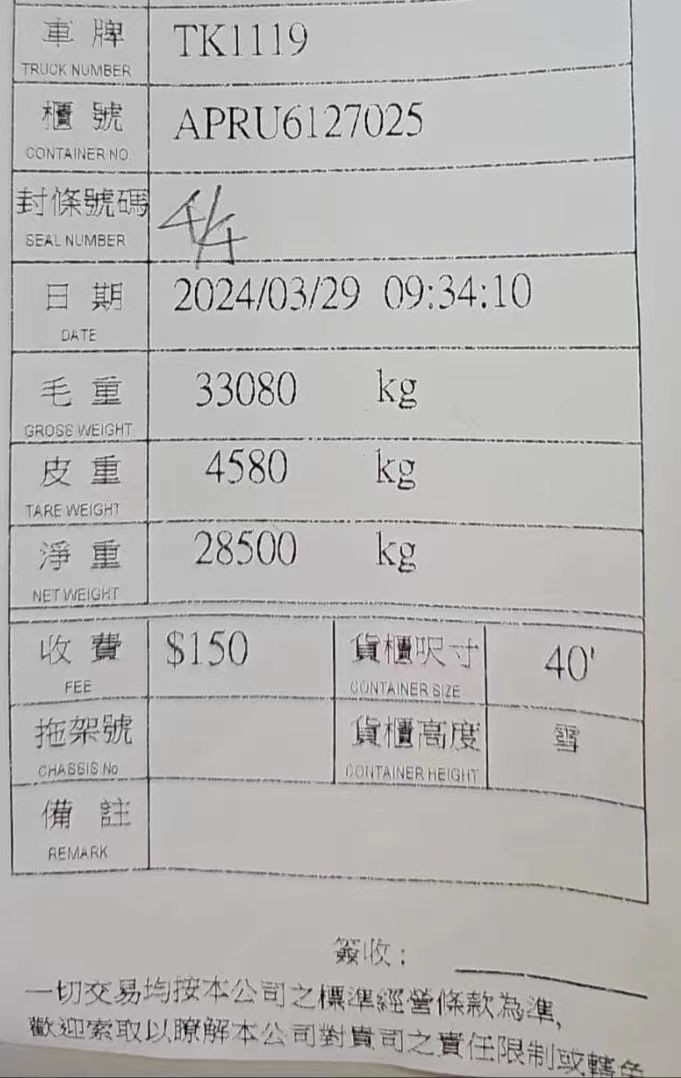 車牌 TK1119
TRUCK NUMBER
櫃號 APRU6127025
CONTAINER NO.
封條號碼
SEAL NUMBER
日期 2024/03/29 09:34:10
DATE
毛重 33080 kg
GROSS WEIGHT
皮重 4580 kg
TARE WEIGHT
淨重 28500 kg
NET WEIGHT
收費 $150 貨櫃呎寸 40'
FEE CONTAINER SIZE
拖架號 貨櫃高度 雪
CHASSIS No CONTAINER HEIGHT
備註
REMARK
簽收：
一切交易均按本公司之標準經營條款為準,
歡迎索取以瞭解本公司對貴司之責任限制或轄免